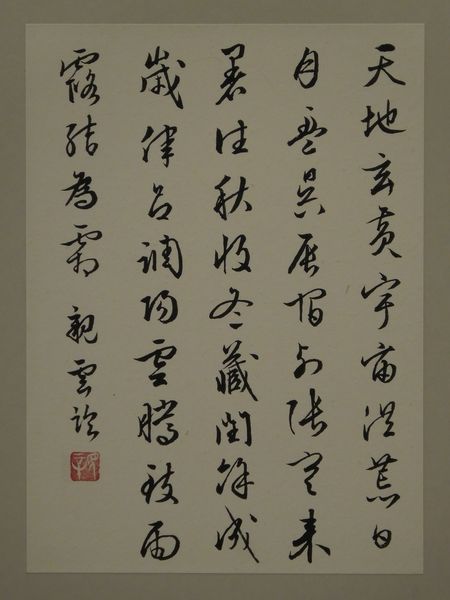 天地玄黃宇宙洪荒日
月盈昃辰宿列張寒来
暑往秋收冬藏閏餘成
歲律呂調陽雲騰致雨
露結為霜 親雲